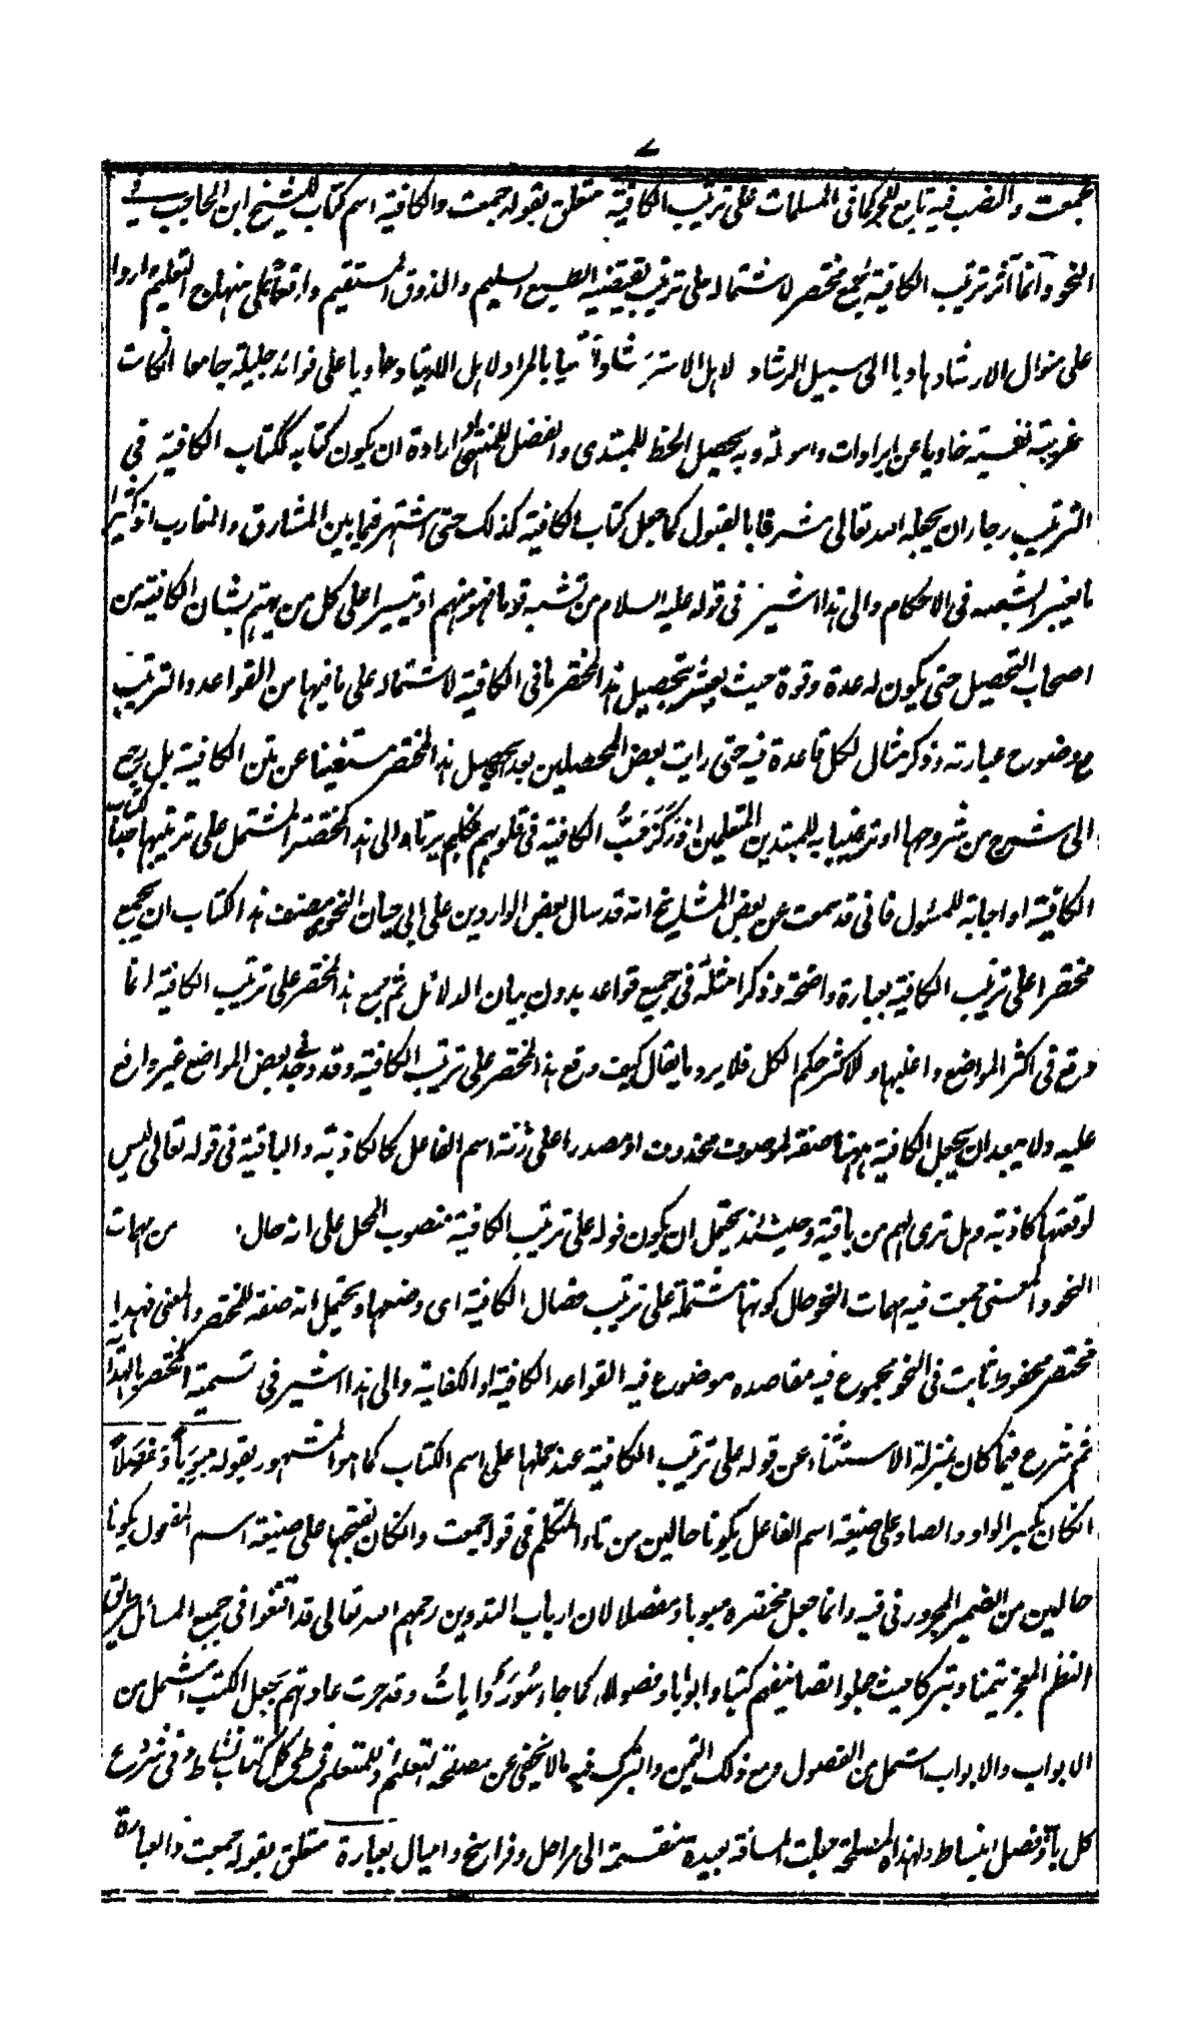 ٧
جمعت والنصب فيه تابع للجر كما فى المسلمات على ترتيب الكافية متعلق بقوله جمعت والكافية اسم كتاب للشيخ ابن الحاجب فى
النحو وانما آثر ترتيب الكافية بجمع مختصر لاشتماله على ترتيب يقتضيه الطبع السليم والذوق المستقيم واقعا على منهاج التعليم واردا
على منوال الارشاد هاديا الى سبيل الرشاد لاهل الاسترشاد وآتيا بالمراد لاهل الارتياد وحاويا على فوائد جليلة جامعا لنكات
غريبة نفيسة خاويا عن ايرادات واسولة وبه يحصل الحظ للمبتدى والفضل للمنتهى او ارادة ان يكون كتابه ككتاب الكافية فى
الترتيب رجاء ان يجعله الله تعالى مشرفا بالقبول كما جعل كتاب الكافية كذلك حتى اشتهر فيما بين المشارق والمغارب اذ كثيرا
ما يعتبر الشبه فى الاحكام والى هذا اشير فى قوله عليه السلام من تشبه قوما فهو منهم او تيسيرا على كل من يهتم بشان الكافية من
اصحاب التحصيل حتى يكون له عدة وقوة حيث يعثر بتحصيل هذا المختصر ما فى الكافية لاشتماله على ما فيها من القواعد والترتيب
مع وضوح عبارته وذكر مثال لكل قاعدة فيه حتى رايت بعض المحصلين بعد تحصيل هذا المختصر مستغنيا عن متن الكافية بل يرجع
الى شرح من شروحها او ترغيبا به للمبتدين المتعلمين اذ ركز حب الكافية فى قلوبهم فكلهم يرتادوا الى هذا المختصر المشتمل على ترتيبها كتاب
الكافية او اجابة للمسئول فانى قد سمعت عن بعض المشايخ انه قد سال بعض الواردين على ابى حيان النحوى مصنف هذا الكتاب ان يجمع
مختصرا على ترتيب الكافية بعبارة واضحة وذكر امثلة فى جميع قواعد بدون بيان الدلائل ثم جمع هذا المختصر على ترتيب الكافية انما
وقع فى اكثر المواضع واغلبها وللاكثر حكم الكل فلا يرد ما يقال كيف وقع هذا المختصر على ترتيب الكافية وقد وجد فى بعض المواضع غير واقع
عليه ولا يبعد ان يجعل الكافية ههنا صفة لموصوف محذوف او مصدرا على زنة اسم الفاعل كالكاذبة والباقية فى قوله تعالى ليس
لوقعتها كاذبة وهل ترى لهم من باقية وحينئذ يحتمل ان يكون قوله على ترتيب الكافية منصوب المحل على انه حال من مهمات
النحو والمعنى جمعت فيه مهمات النحو حال كونها مشتملة على ترتيب خصال الكافية اى وضعها ويحتمل انه صفة للمختصر والمعنى فهذا
مختصر محفوظ ثابت فى النحو مجموع فيه مقاصده موضوع فيه القواعد الكافية او الكفاية والى هذا اشير فى تسمية المختصر بالهداية
ثم شرع فيما كان بمنزلة الاستثناء عن قوله على ترتيب الكافية عند حملها على اسم الكتاب كما هو المشهور بقوله مبوبا ومفصلا
ان كان بكسر الواو والصاد على صيغة اسم الفاعل يكونا حالين من تاء المتكلم فى قوله جمعت وان كان بفتحها على صيغة اسم المفعول يكونا
حالين من الضمير المجرور فى فيه وانما جعل مختصره مبوبا ومفصلا لان ارباب التدوين رحمهم الله تعالى قد اقتفوا فى جميع المسائل طريق
النظم المعجز تيمنا وتبركا حيث جعلوا تصانيفهم كتبا وابوابا وفصولا كما جاء سُوَرٌ وآيات وقد جرت عادتهم بجعل الكتب تشتمل من
الابواب والابواب اشتمل من الفصول ومع ذلك التيمن والتبرك فيه ما لا يخفى عن مصلحة التعليم اذ للمتعلم فى طى كل كتاب نشاط وفى شروع
كل باب وفصل انبساط ولهذه المصلحة جعلت المسافة بعيدة منقسمة الى مراحل وفراسخ واميال بعبارة متعلق بقوله جمعت والعبارة